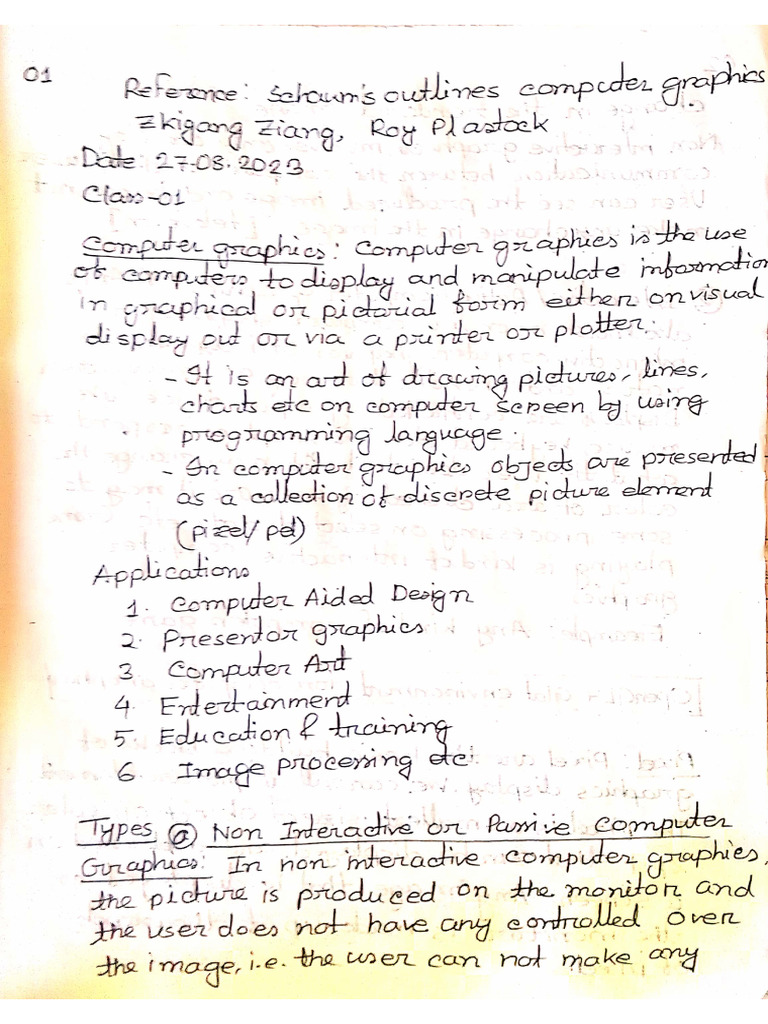 01
Reference: Schaum's outlines computer graphics
Zkigang Ziang, Roy Plastock
Date 27.08.2023
Class-01
Computer graphics: Computer graphics is the use
of computers to display and manipulate information
in graphical or pictorial form either on visual
display out or via a printer or plotter.
- It is an art of drawing pictures, lines,
charts etc on computer screen by using
programming language.
- In computer graphics objects are presented
as a collection of discrete picture element
(pixel/pel)
Applications
1. Computer Aided Design
2. Presentor graphics
3. Computer Art
4. Entertainment
5. Education & training
6. Image processing etc.
Types @ Non Interactive or Passive Computer
Graphics: In non interactive computer graphics,
the picture is produced on the monitor and
the user does not have any controlled over
the image, i.e. the user can not make any